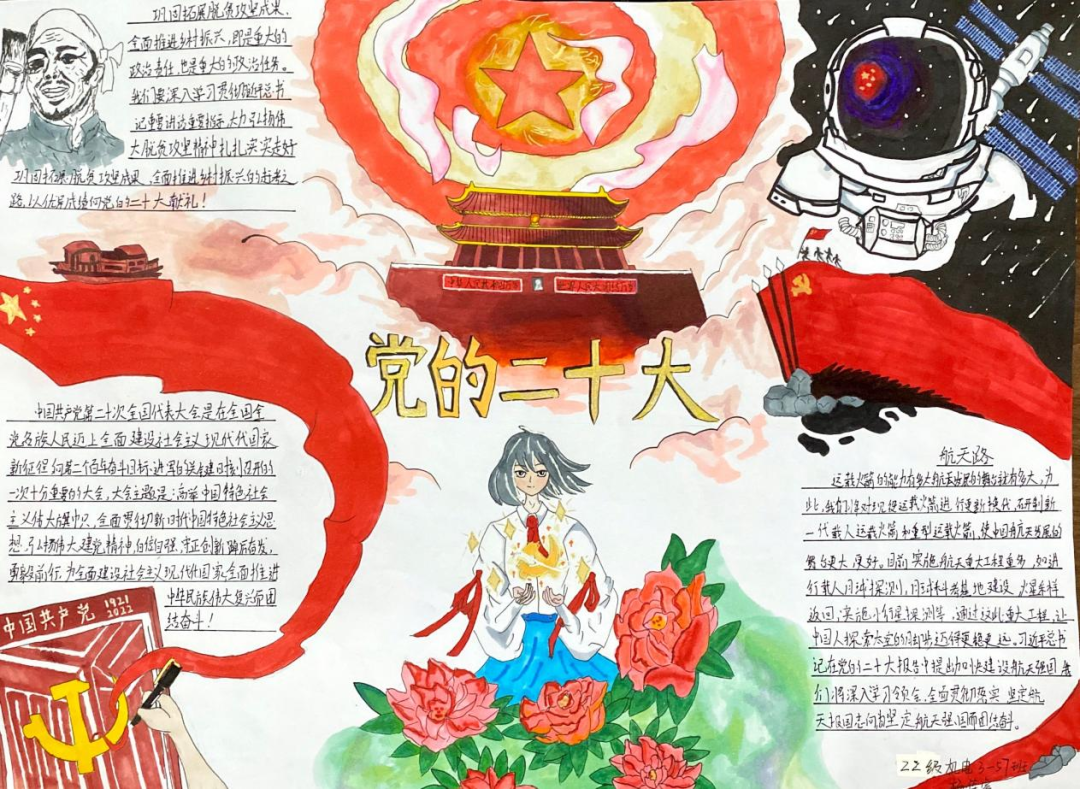 巩固拓展脱贫攻坚成果,
全面推进乡村振兴,即是重大的
政治责任,也是重大的政治任务。
我们要深入学习贯彻习近平总书
记重要讲话重要指示,大力弘扬伟
大脱贫攻坚精神,扎扎实实走好
巩固拓展脱贫攻坚成果、全面推进乡村振兴的赶考之
路,以优异成绩向党的二十大献礼!
中华人民共和国万岁
党的二十大
中国共产党第二十次全国代表大会是在全国全
党各族人民迈上全面建设社会主义现代化国家
新征程向第二个百年奋斗目标进军的关键时刻召开的
一次十分重要的大会,大会主题是:高举中国特色社会
主义伟大旗帜,全面贯彻新时代中国特色社会主义思
想,弘扬伟大建党精神,自信自强、守正创新,踔厉奋发、
勇毅前行,为全面建设社会主义现代化国家全面推进
中华民族伟大复兴而团
结奋斗!
中国共产党
1921
2022
航天路
运载火箭的能力有多大,航天发展的舞台就有多大,为
此,我们将对现役运载火箭进行更新换代,在研制新
一代载人运载火箭和重型运载火箭,使中国航天发展的
舞台更大、更好。目前实施航天重大工程任务,如进
行载人月球探测,月球科考基地建设、火星采样
返回,实施小行星探测等,通过这些重大工程,让
中国人探索太空的脚步迈得更稳更远。习近平总书
记在党的二十大报告中提出加快建设航天强国,我
们将深入学习领会、全面贯彻落实,坚定航
天报国志向为坚定航天强国而团结奋斗。
22级机电3-57班